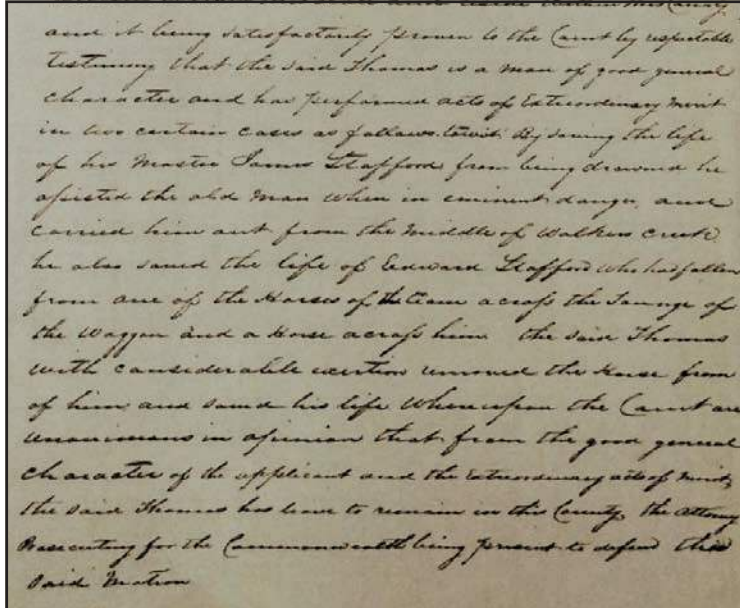 and reside within this County,
and it being satisfactorily proven to the Court by respectable
testimony that the said Thomas is a man of good general
character and has performed acts of Extraordinary merit
in two certain cases as follows. towit. By saving the life
of his Master James Stafford from being drowned he
assisted the old man when in eminent danger, and
carried him out from the middle of Walkers creek,
he also saved the life of Eedward Stafford who had fallen
from one of the Horses of the team across the Tounge of
the Waggon and a Horse across him the said Thomas
with considerable exertion removed the Horse from
of him and saved his life Whereupon the Court are
unanimous in opinion that from the good general
character of the applicant and the Extraordinary acts of merit,
the said Thomas has leave to remain in this County, the attorney
Prosecuting for the Commonwealth being present to defend this
said Motion